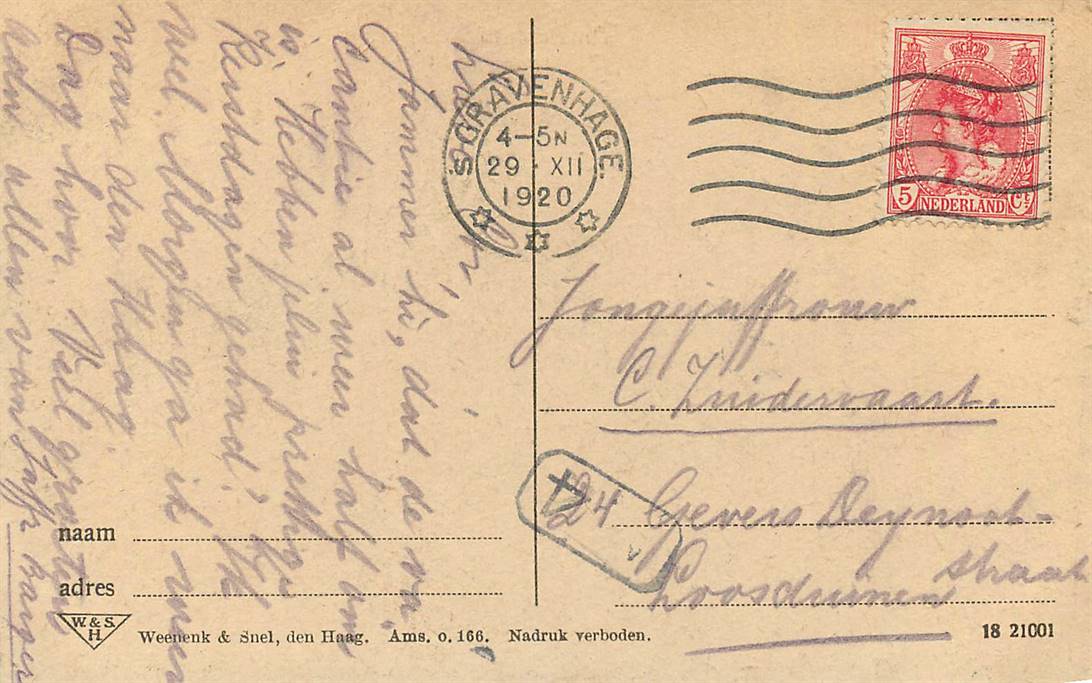 'S GRAVENHAGE.
4–5N
29 · XII
1920
5 NEDERLAND Ct
Jammer hè, dat de va-
cantie al weer half om
is. Hebben jullie prettige
Kerstdagen gehad? Ik
wel. Morgen ga ik weer
naar den Haag.
Dag hoor. Veel groeten
aan allen van Juffr.
Jongejuffrouw
C. Zuidervaart.
124 Gevers Deynoot-
straat
Loosduinen
naam
adres
W. & S.
H.
Weenenk & Snel, den Haag. Ams. o. 166. Nadruk verboden.
18 21001